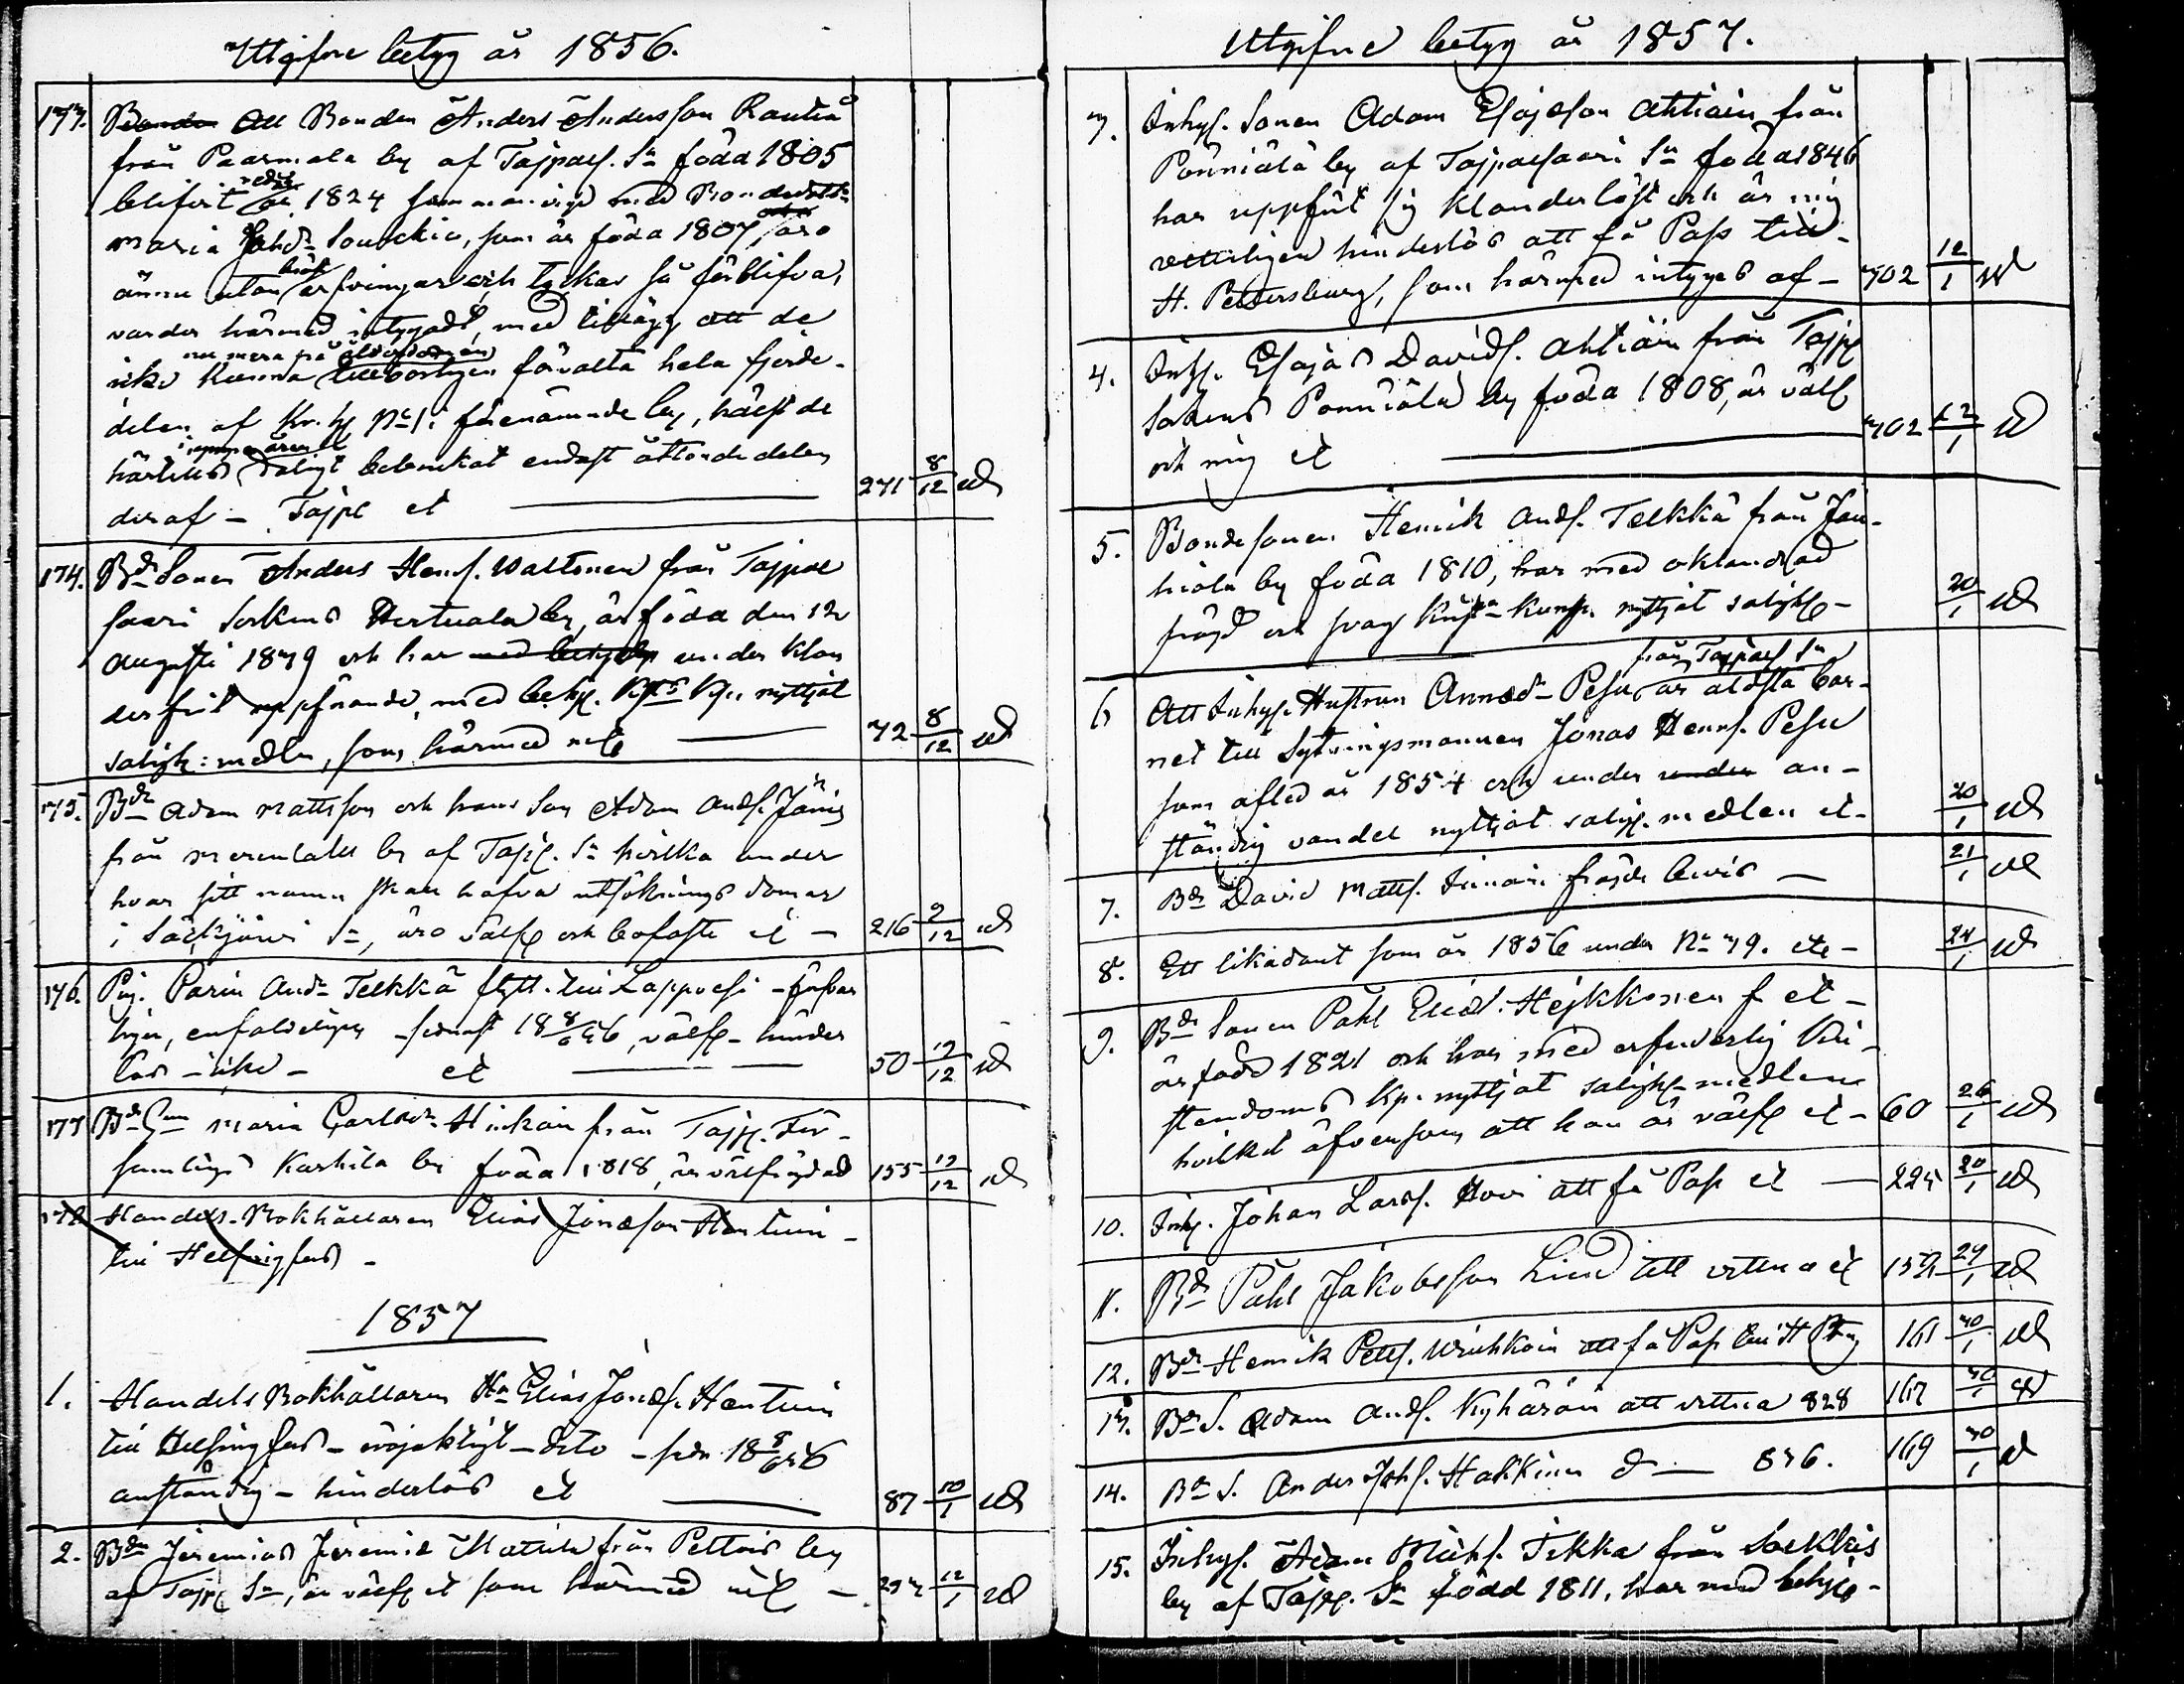 Utgifne betyg år 1856.
173. Att Bonden Anders Andersson Rautia
från Paarmala by af Taipals. Sn född 1805
blifvit redan år 1824 sammanvigd med Bondedottr
Maria Johsdr som är född 1807, äro
ännu utan bröst arfvingar och tyckas så förblifva,
varder härmed intygadt, med tillägg att de
icke numera på ålderdomen kunna förvalta hela fjerde-
delen af Kr. h. No 1 i förenämnde by, hälst de
härtills dåligt bebrukat endast åttondedelen
deraf - Taipl et 271 8/12 ed
174. Bde Sonen Anders Hens. Waltonen från Taipal
saari Sockens Herttuala by, är född den 12
Augusti 1839 och har under klan
derfritt uppförande, med behg. nyttjat
saligh: medlen, som härmed 72 8/12 ed
175. Bdn Adam Mattsson och hans Son Adam Ands. Jänis
från Merenlaks by af Taipl. Sn hvilka under
hvar sitt namn skall hafva utsöknings domar
i Säckjärvi Sn, äro välfg och bofaste et - 216 9/12 ed
176. Pig. Carin Andr Telkkä flytt. till Lappvesi - försvar
lig, enfaldeligen - sednast 18 8/6 56, välfg - hinder
lös - icke - et 50 12/12 ed
177 Bde Maria Carlsdr Hinkain från Taipl. För-
samlings Karhila by född 1818, är välfrägdad 155 12/12 ed
178 Handels-Bokhållaren Elias Jonasson Hantuin -
till Helsingfors -
1857
1. Handels Bokhållaren Hr Elias Jonas. Hantuin
till Helsingfors - - dito - sedn 18 8/6 56
anständig - hinderlös et 87 10/1 ed
2. Bdn Jeremias Jeremias. Mattila från Pettois by
af Taipl Sn, är välfg et som härmed 12/1 ed
Utgifne betyg år 1857.
3. Inhys. Sonen Adam Esajeson Ahtiain från
Pönniälä by af Taipalsaari Sn född 1846
har uppfört sig klanderlöst och är mig
vetterligen hinderlös att få Pass till
St. Pettersburg, som härmed intygas af - 302 12/1 ed
4. Inhs. Esajas Davids. Ahtiain från Taipl
Sockens Pönniälä by född 1808, är välfg
och mig et 302 12/1 ed
5. Bondesonen Henrik Ands. Telkkä från Jau-
hiala by född 1810, har med oklandrad
frägd och svag Krista- kunsk. nyttjat salighs - 20/1 ed
6 Att Inhys. Hustrun Anna Pesu, från Taipals Sn är äldsta bar-
net till Sytningsmannen Jonas Henrs. Pesu
som afled år 1854 och under an-
ständig vandel nyttjat saligh. medlen et - 20/1 ed
7. Bdn David Matts. frägde bevis - 21/1 ed
8. Ett likadant som år 1856 under No 79. etc - 24/1 ed
9. Bde Sonen Påhl Elias. Hejkkonen f et -
är född 1821 och har med erfoderlig Kri-
stendoms Kp. nyttjat saligh- medlen
hvilket äfvensom att han är välfg et - 60 26/1 ed
10. Inhy. Johan Lars. Hovi att få Pass et 225 20/1 ed
11. Bdn Påhl Jakobsson Lind att vittna et 152 29/1 ed
12. Bdn Henrik Petts. att få Pass till St Pbg 161 30/1 ed
13. Bde S. Adam Ands. Kyhäräin att vittna 828 167 30/1 ed
14. Bde S. Anders Johs. Hakkinen d - 836. 169 30/1 ed
15. Inhys. Adam Michs. Tikka från
by af Taipl. Sn född 1811, har med behgl-